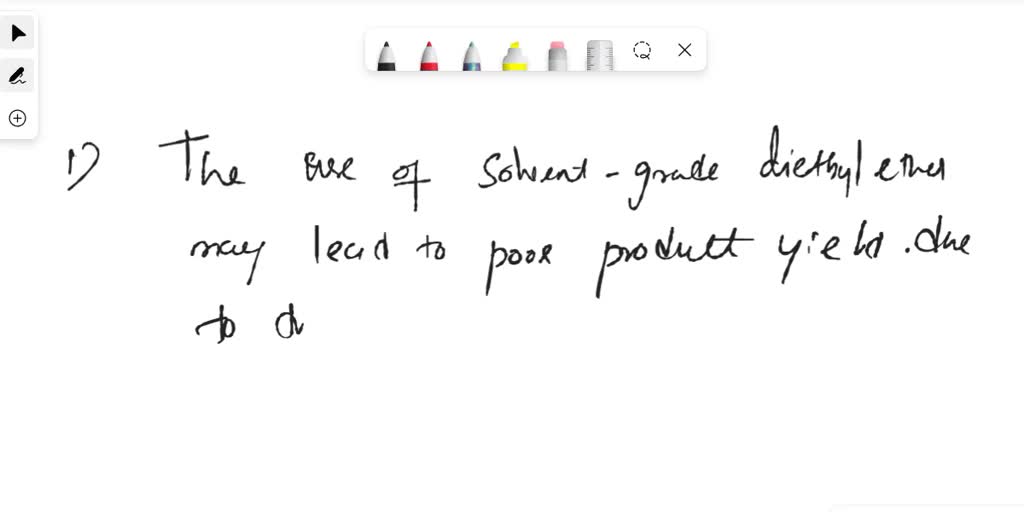 1) The use of solvent-grade diethyl ether
may lead to poor product yield. due
to d